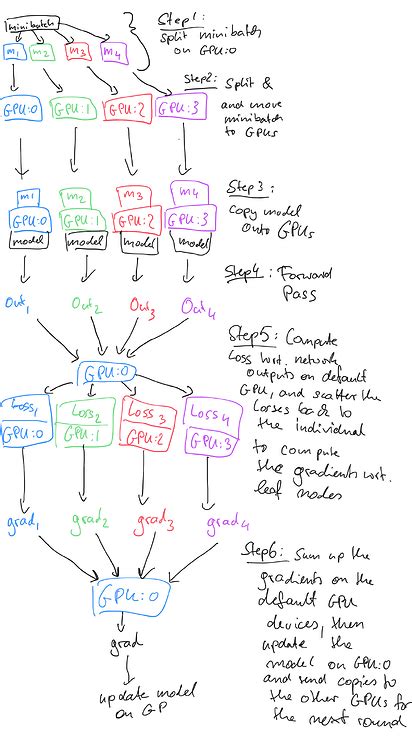 minibatch
Step1:
split minibatch
on GPU:0
m1 m2 m3 m4
Step2: Split &
and move
minibatch
to GPUs
GPU:0 GPU:1 GPU:2 GPU:3
m1 m2 m3 m4
GPU:0 GPU:1 GPU:2 GPU:3
model model model model
Step 3:
copy model
onto GPUs
Step4: Forward
Pass
Out1 Out2 Out3 Out4
Step5: Compute
Loss wrt. network
outputs on default
GPU, and scatter the
losses back to
the individual
to compute
the gradients wrt.
leaf nodes
GPU:0
Loss1 Loss2 Loss3 Loss4
GPU:0 GPU:1 GPU:2 GPU:3
grad1 grad2 grad3 grad4
Step6: Sum up the
gradients on the
default GPU
devices, then
update the
model on GPU:0
and send copies to
the other GPUs for
the next round
GPU:0
grad
update model
on GP